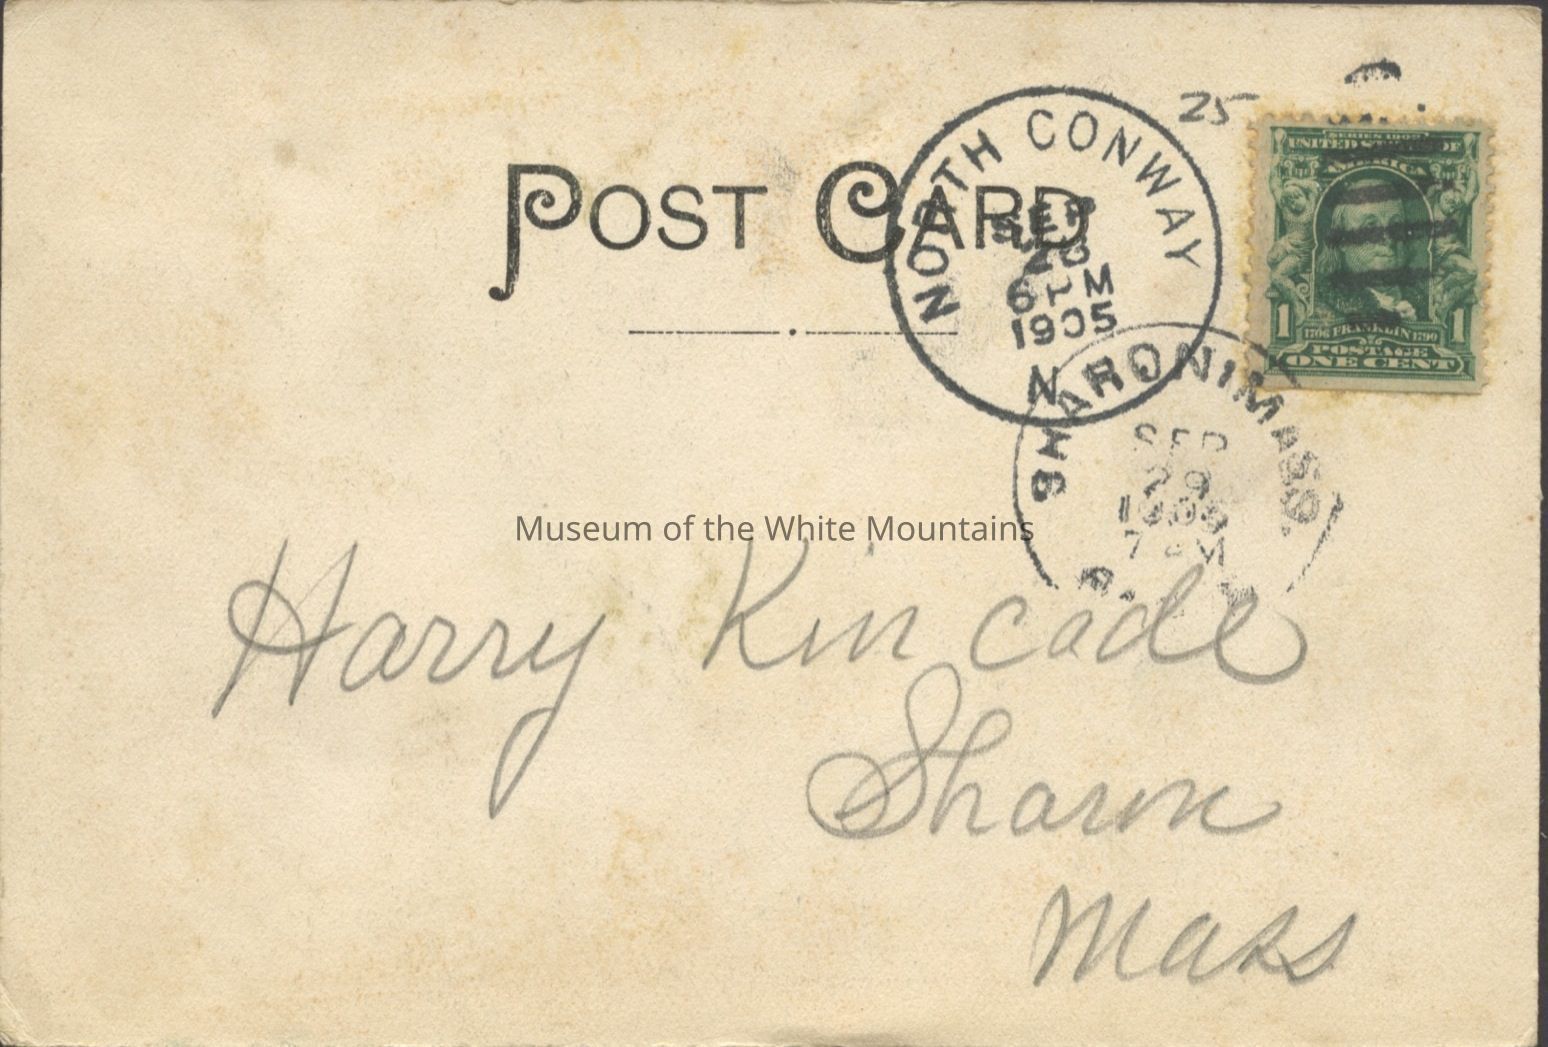 POST CARD
25
NORTH CONWAY
SEP
6 PM
1905
N.H.
SERIES 1902
UNITED STATES OF
AMERICA
1 1706 FRANKLIN 1790 1
POSTAGE
ONE CENT
SHARON, MASS.
SEP
29
1905
7 AM
Museum of the White Mountains
Harry Kincade
Sharon
Mass